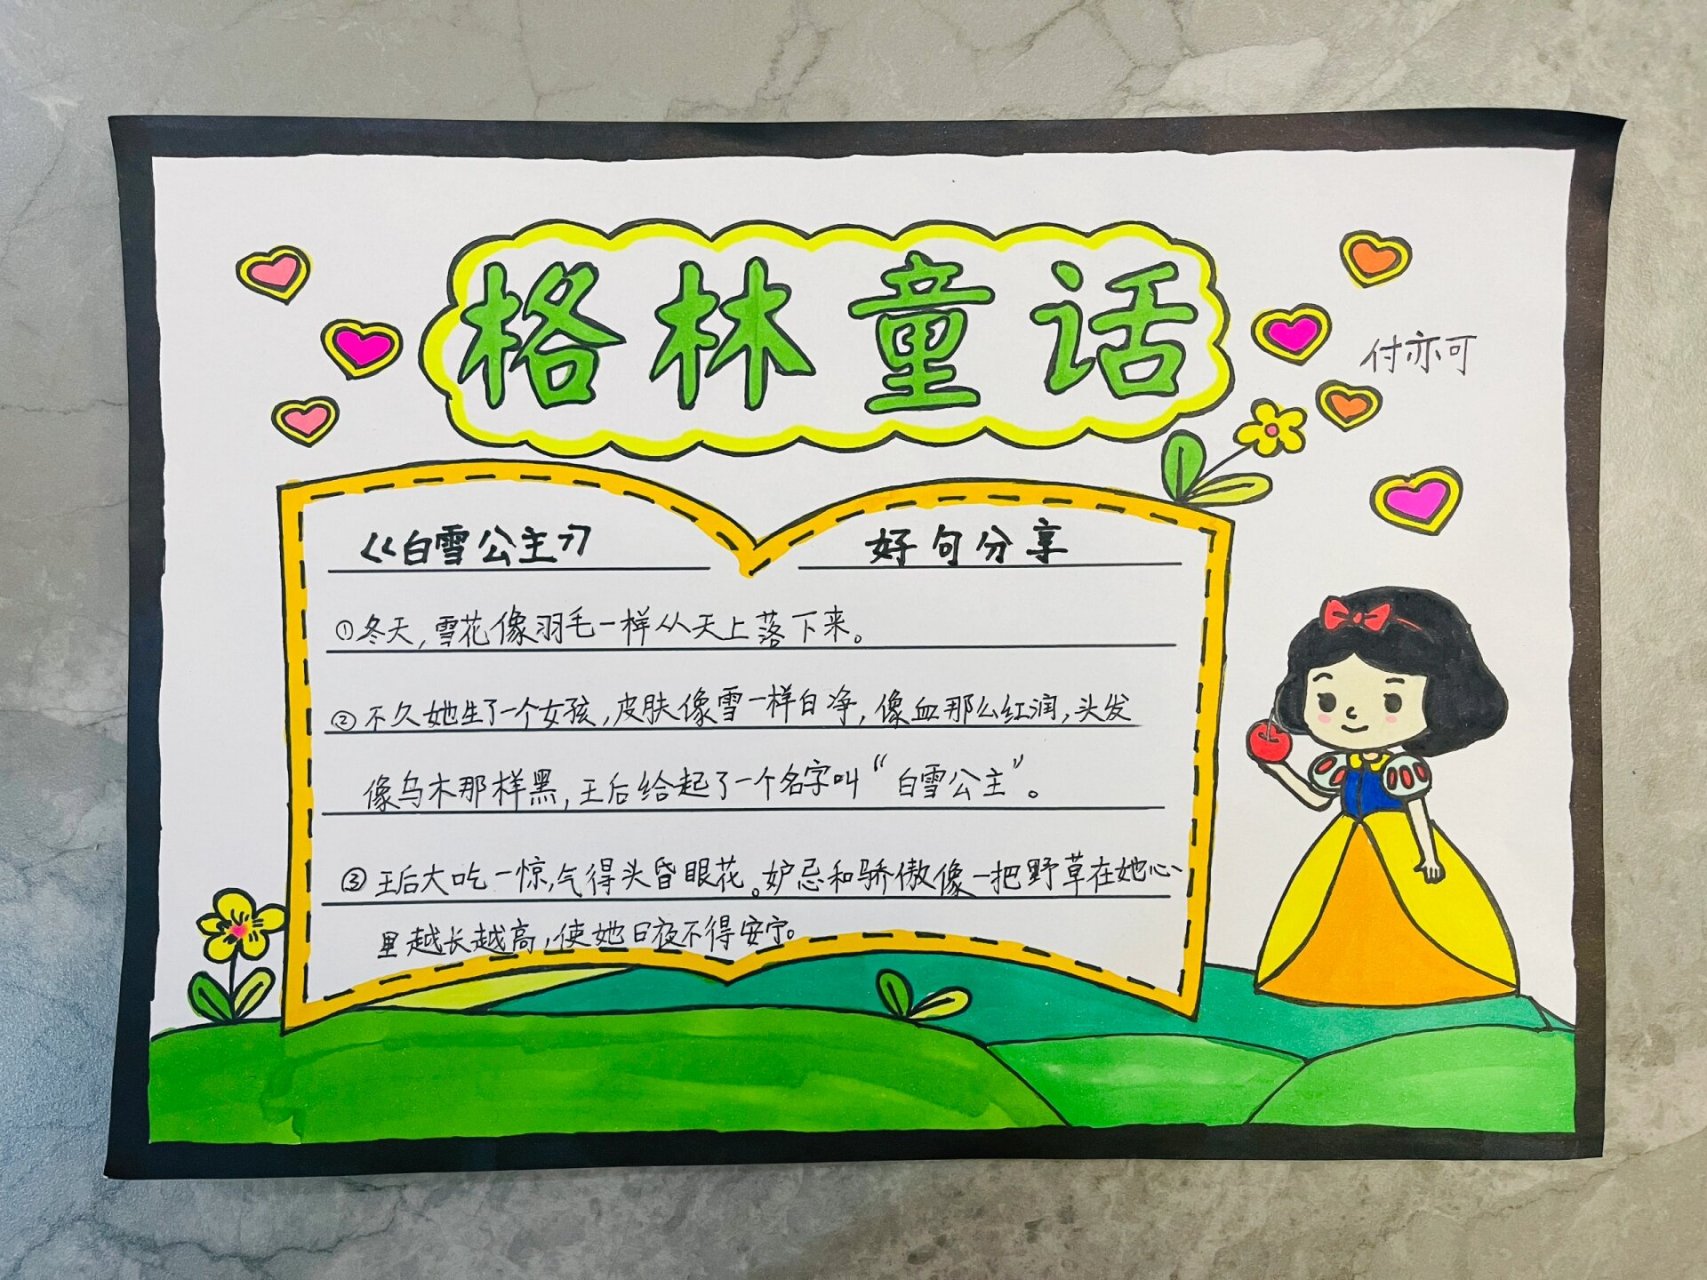 格林童话
付亦可
《白雪公主》 好句分享
①冬天,雪花像羽毛一样从天上落下来。
②不久她生了一个女孩,皮肤像雪一样白净,像血那么红润,头发
像乌木那样黑,王后给起了一个名字叫“白雪公主”。
③王后大吃一惊,气得头昏眼花。妒忌和骄傲像一把野草在她心
里越长越高,使她日夜不得安宁。